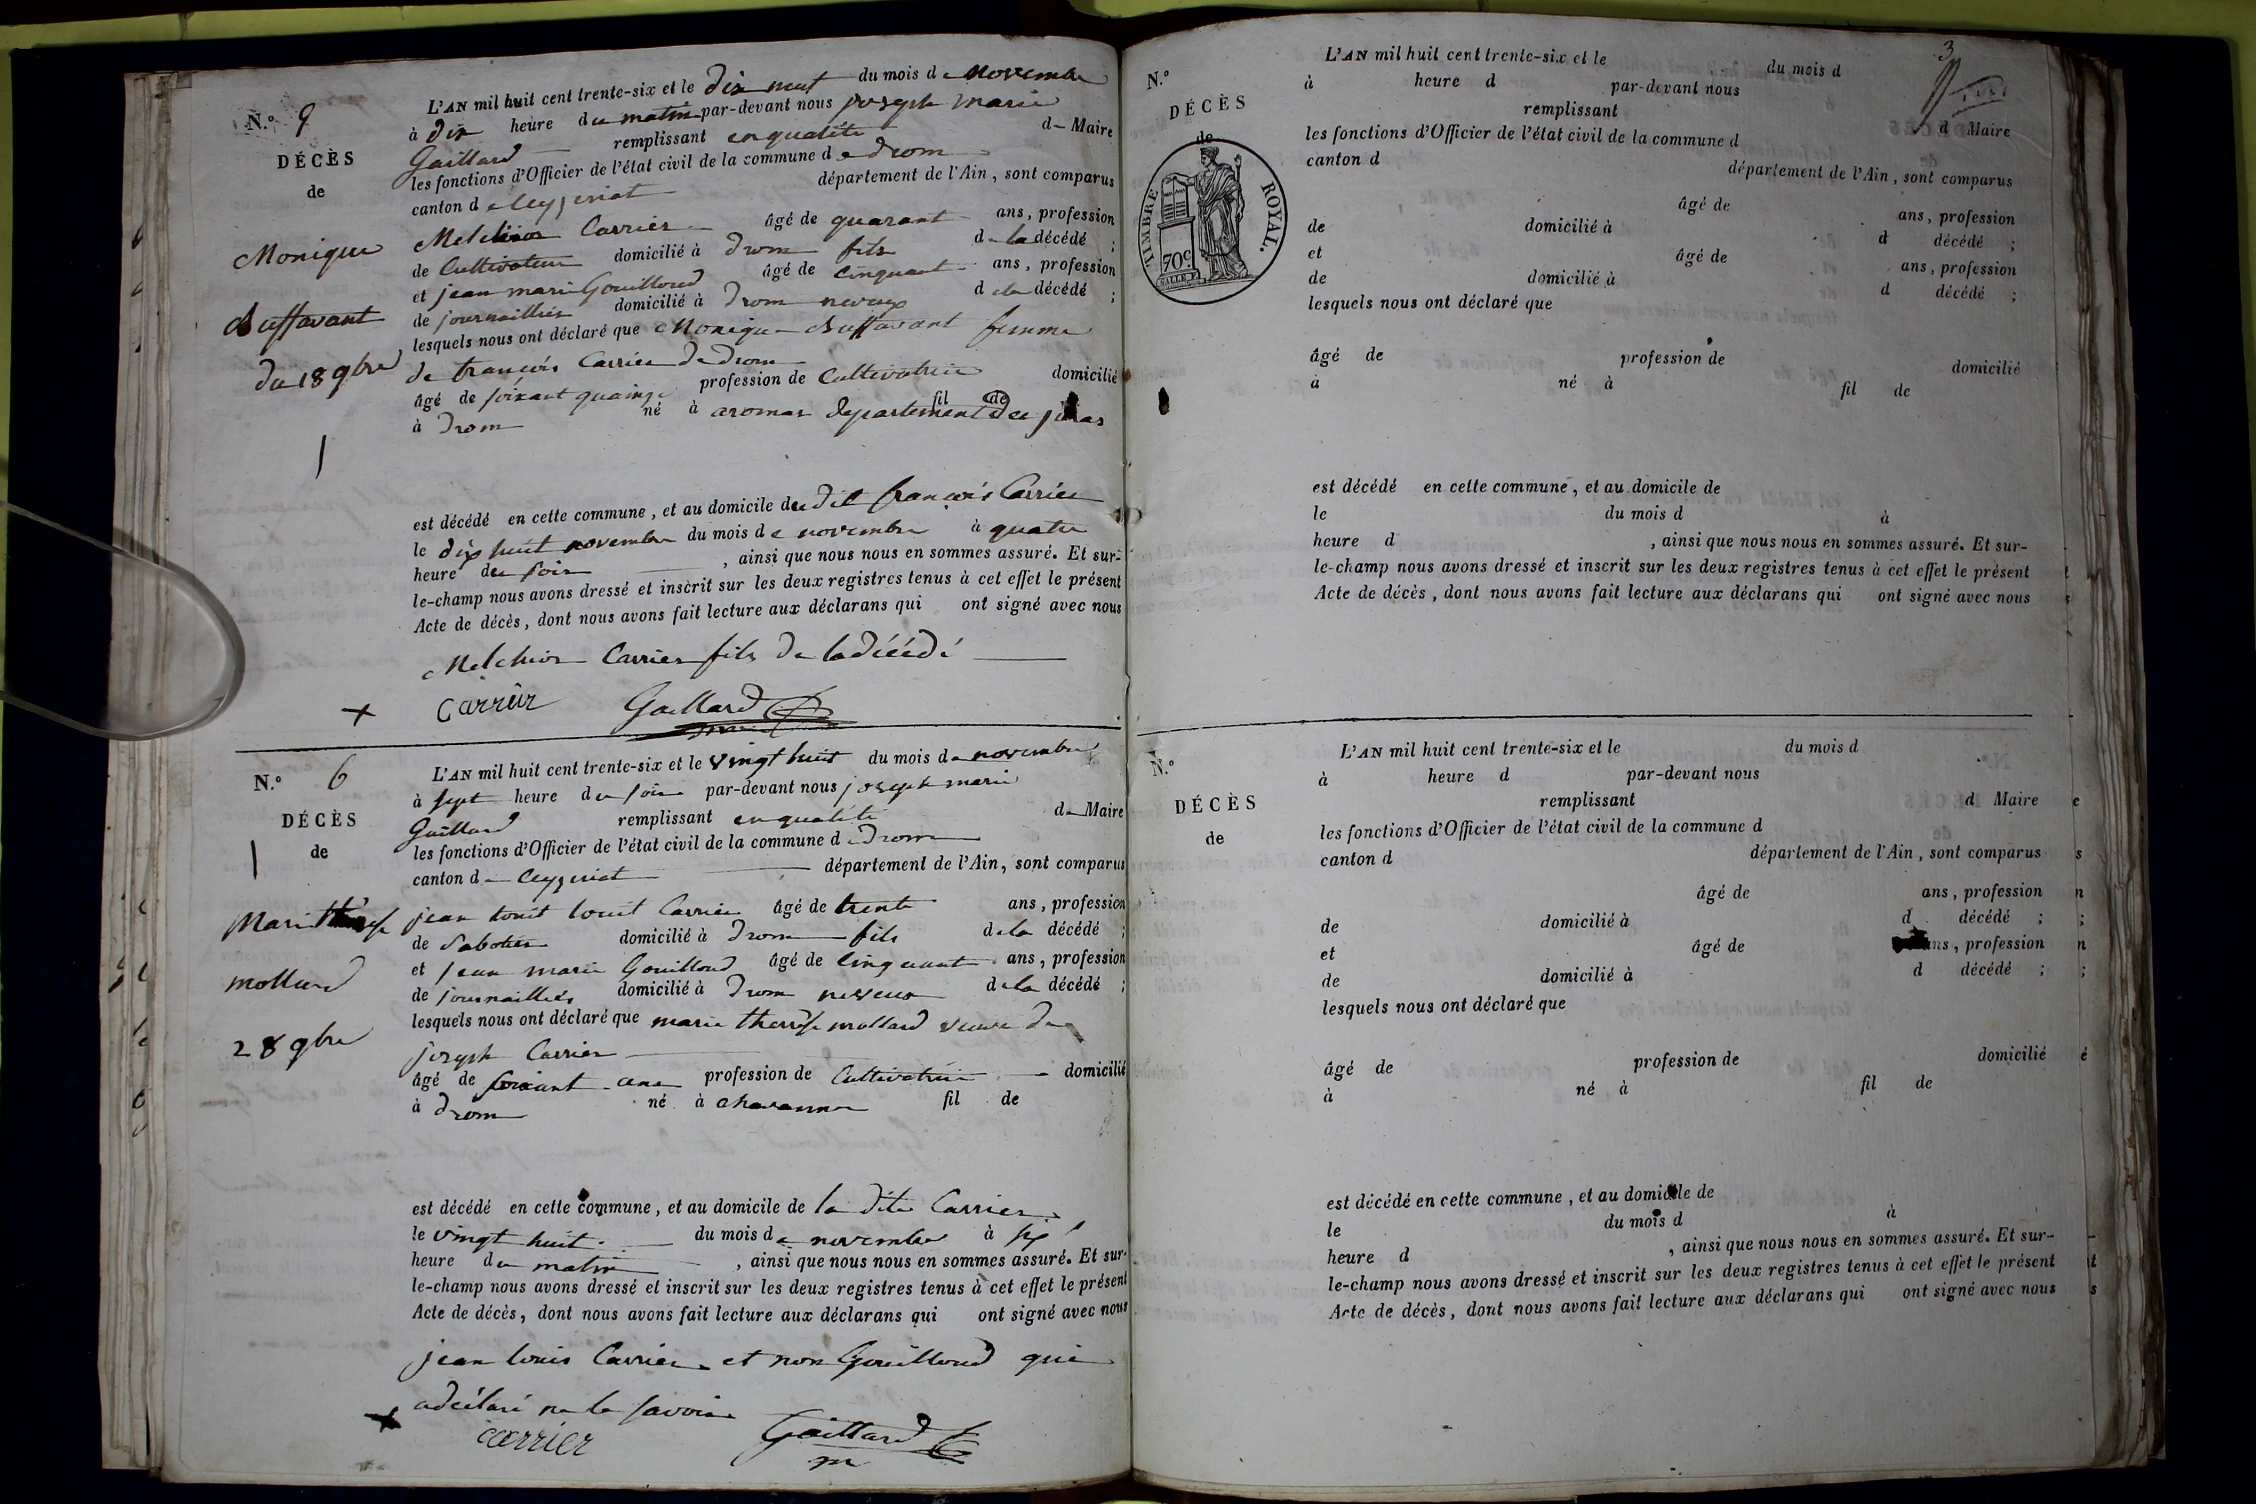 N.° 9
DÉCÈS
de
Monique
Buffavant
du 18 9bre
L'AN mil huit cent trente-six et le dix neuf du mois de novembre
à dix heure du matin par-devant nous joseph marie
Gaillard remplissant en qualité de Maire
les fonctions d'Officier de l'état civil de la commune de drom
canton de Ceyzeriat département de l'Ain, sont comparus
Melchior Carrier âgé de quarant ans, profession
de Cultivateur domicilié à Drom fils de la décédé ;
et jean marie Gouilloud âgé de cinquant ans, profession
de journaillier domicilié à Drom neveux de la décédé ;
lesquels nous ont déclaré que Monique Buffavant femme
de francois Carrier de drom
âgé de soixant quainze profession de Cultivatrice domicilié
à Drom né à aromas departement des juras fil de
est décédé en cette commune, et au domicile du dit francois Carrier
le dix huit novembre du mois de novembre à quatre
heure du soir , ainsi que nous nous en sommes assuré. Et sur-
le-champ nous avons dressé et inscrit sur les deux registres tenus à cet effet le présent
Acte de décès, dont nous avons fait lecture aux déclarans qui ont signé avec nous
Melchior Carrier fils de la décédé
Carrier Gaillard
N.° 6
DÉCÈS
de
Marie therese
mollard
28 9bre
L'AN mil huit cent trente-six et le vingt huit du mois de novembre
à sept heure du soir par-devant nous joseph marie
Gaillard remplissant en qualité de Maire
les fonctions d'Officier de l'état civil de la commune de Drom
canton de Ceyzeriat département de l'Ain, sont comparus
jean louit Carrier âgé de trente ans, profession
de Sabotier domicilié à Drom fils de la décédé ;
et jean marie Gouilloud âgé de cinquant ans, profession
de journaillier domicilié à Drom neveux de la décédé ;
lesquels nous ont déclaré que marie therese mollard veuve de
joseph Carrier
âgé de soixant ans profession de Cultivatrice domicilié
à Drom né à chavanne fil de
est décédé en cette commune, et au domicile de la dite Carrier
le vingt huit du mois de novembre à six
heure du matin , ainsi que nous nous en sommes assuré. Et sur-
le-champ nous avons dressé et inscrit sur les deux registres tenus à cet effet le présent
Acte de décès, dont nous avons fait lecture aux déclarans qui ont signé avec nous
jean louis Carrier et non Gouilloud qui
a déclaré ne le savoir
carrier Gaillard
m
3
N.°
DÉCÈS
de
TIMBRE ROYAL.
70c
L'AN mil huit cent trente-six et le du mois d
à heure d par-devant nous
remplissant d Maire
les fonctions d'Officier de l'état civil de la commune d
canton d département de l'Ain, sont comparus
âgé de ans, profession
de domicilié à d décédé ;
et âgé de ans, profession
de domicilié à d décédé ;
lesquels nous ont déclaré que
âgé de profession de domicilié
à né à fil de
est décédé en cette commune, et au domicile de
le du mois d à
heure d , ainsi que nous nous en sommes assuré. Et sur-
le-champ nous avons dressé et inscrit sur les deux registres tenus à cet effet le présent
Acte de décès, dont nous avons fait lecture aux déclarans qui ont signé avec nous
N.°
DÉCÈS
de
L'AN mil huit cent trente-six et le du mois d
à heure d par-devant nous
remplissant d Maire
les fonctions d'Officier de l'état civil de la commune d
canton d département de l'Ain, sont comparus
âgé de ans, profession
de domicilié à d décédé ;
et âgé de ans, profession
de domicilié à d décédé ;
lesquels nous ont déclaré que
âgé de profession de domicilié
à né à fil de
est décédé en cette commune, et au domicile de
le du mois d à
heure d , ainsi que nous nous en sommes assuré. Et sur-
le-champ nous avons dressé et inscrit sur les deux registres tenus à cet effet le présent
Acte de décès, dont nous avons fait lecture aux déclarans qui ont signé avec nous